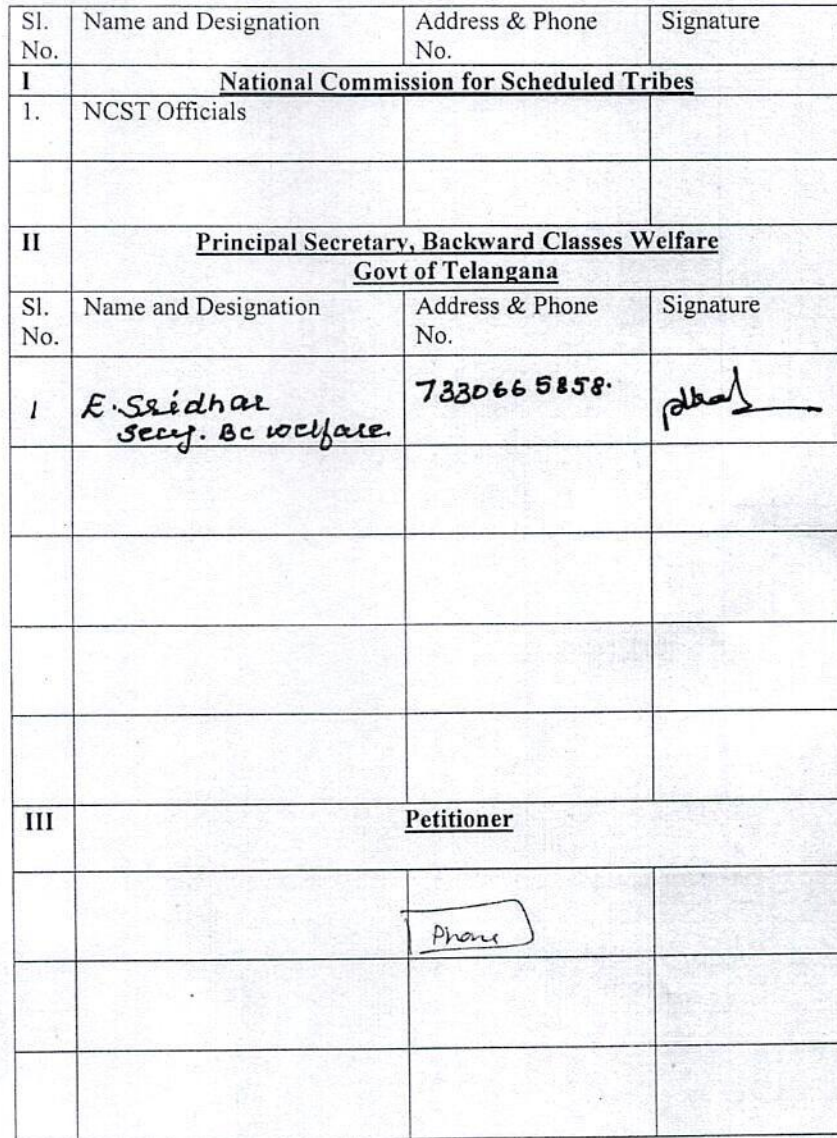 Sl. Name and Designation Address & Phone Signature
No. No.
I National Commission for Scheduled Tribes
1. NCST Officials
II Principal Secretary, Backward Classes Welfare
Govt of Telangana
Sl. Name and Designation Address & Phone Signature
No. No.
1 E. Sridhar 7330665858.
Secy. BC welfare.
III Petitioner
Phone